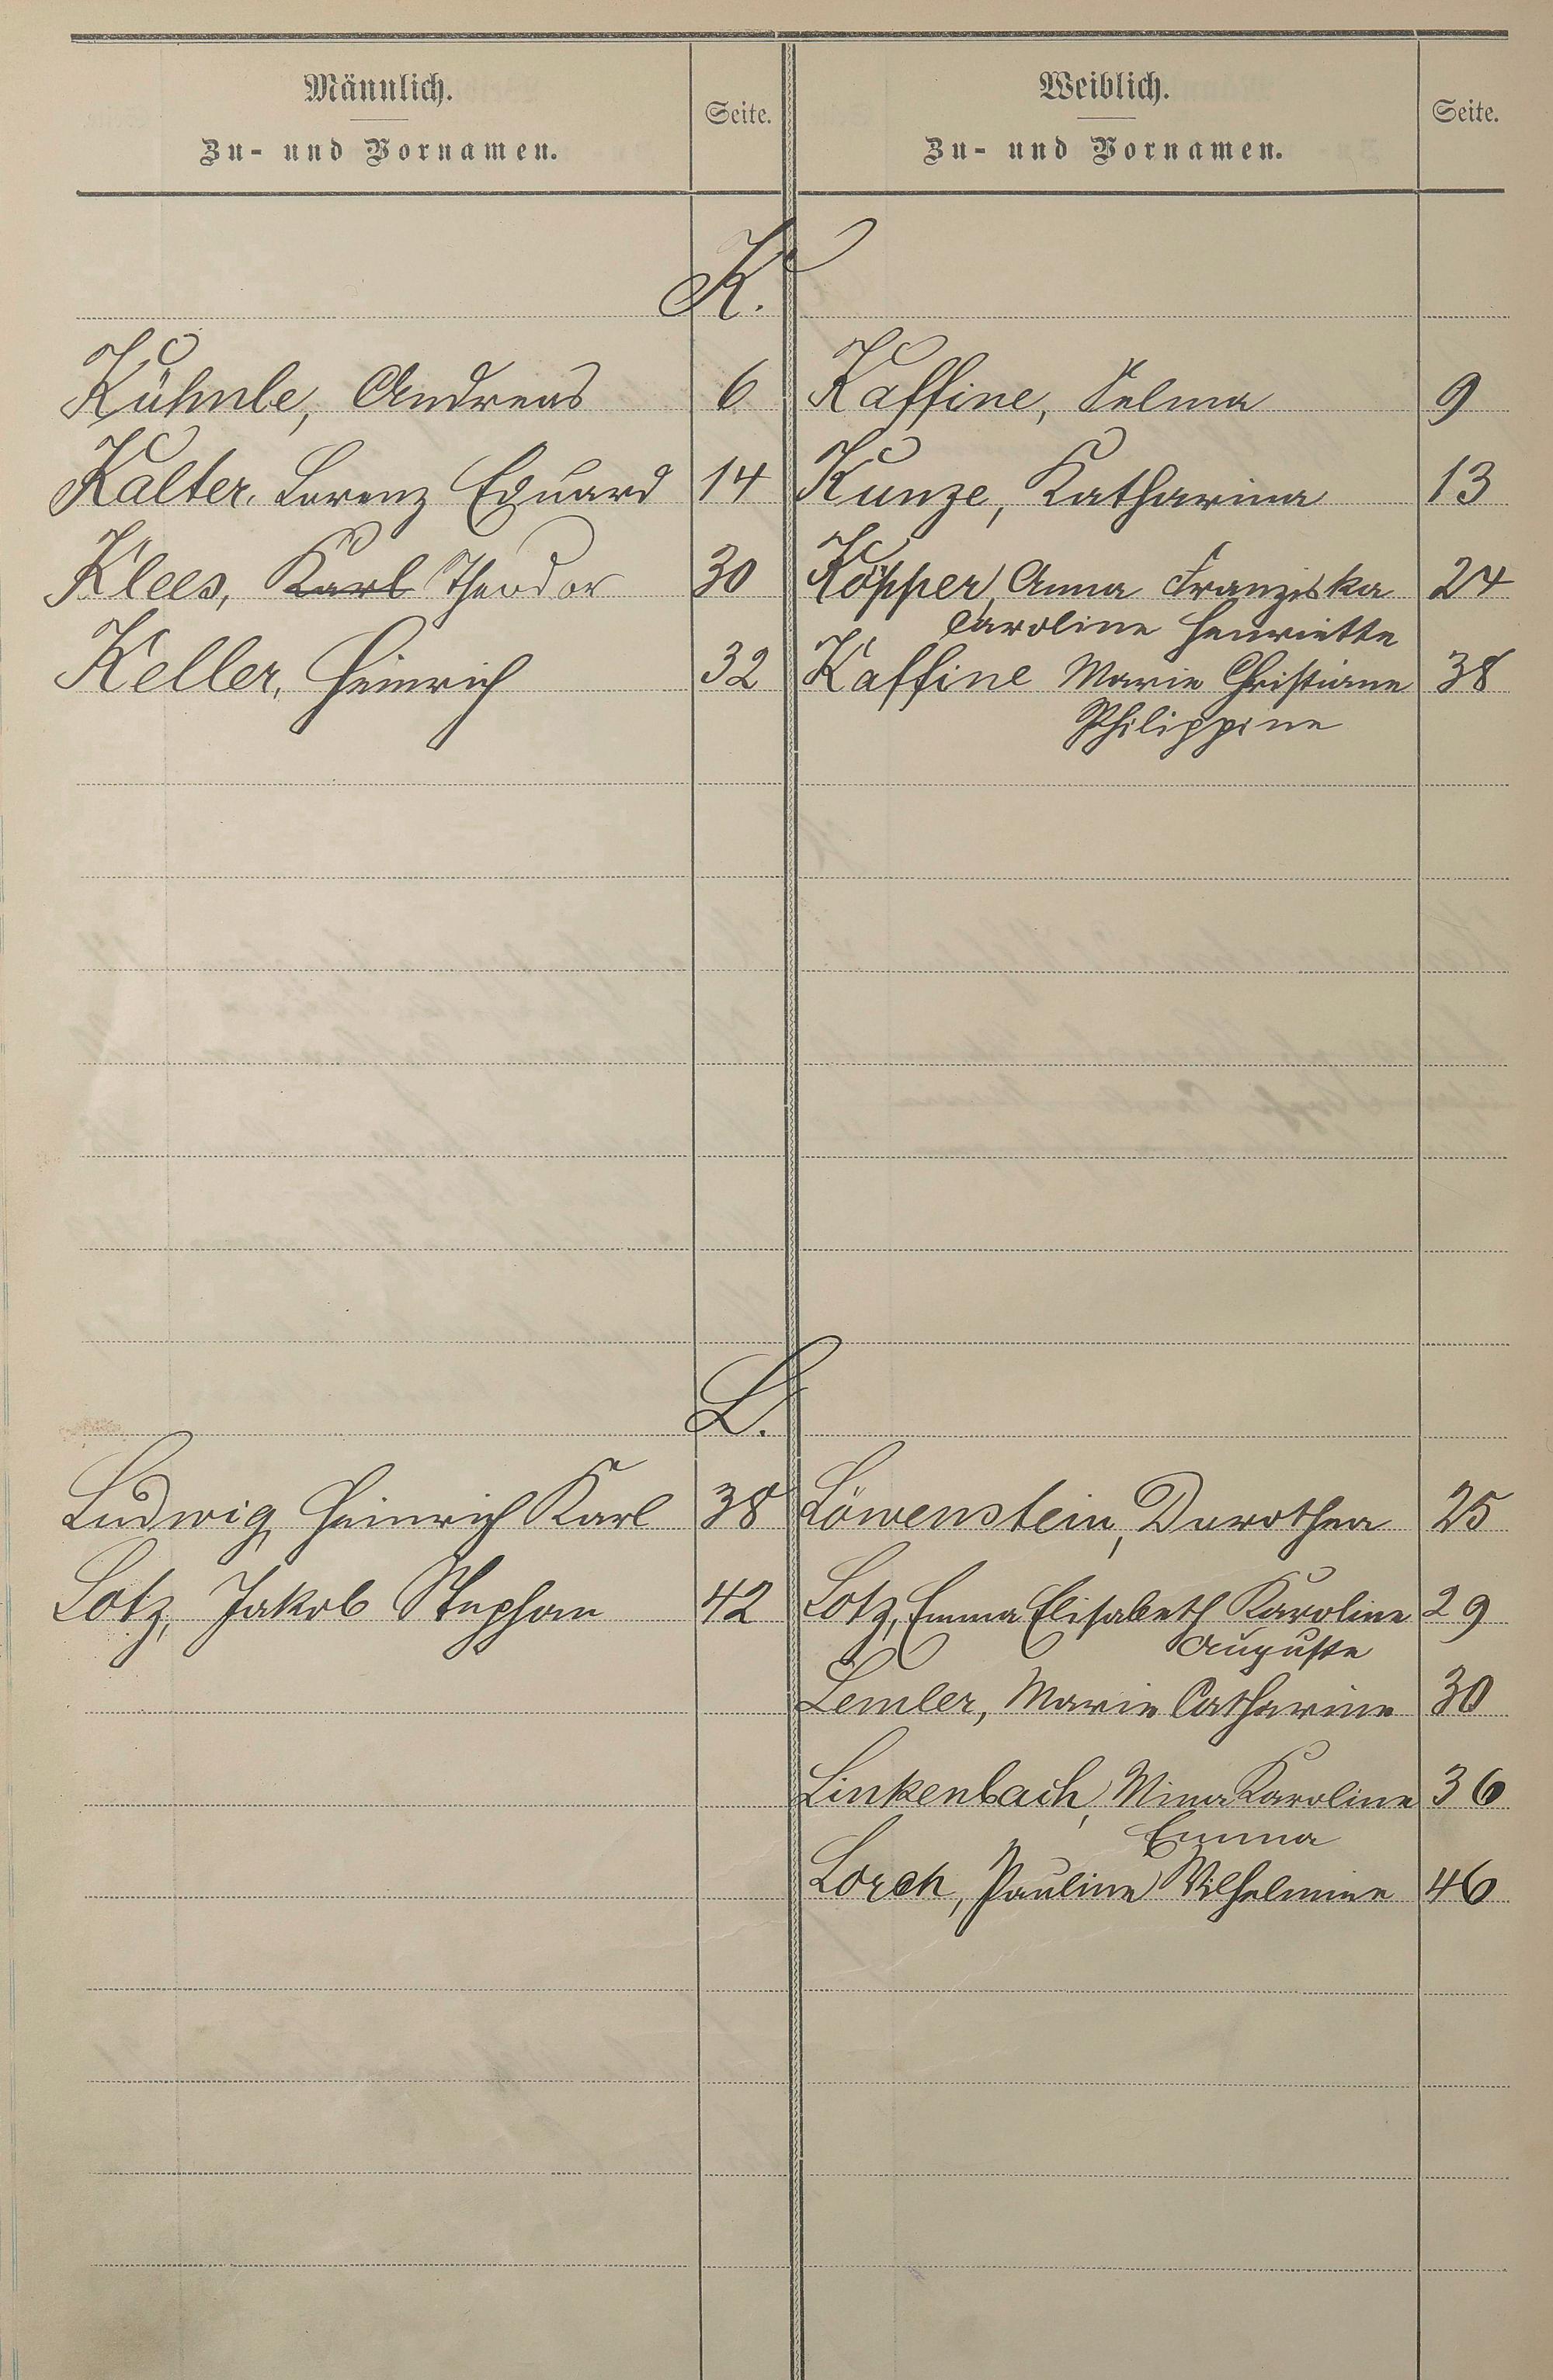 Männlich.
Zu- und Vornamen.
Seite.
Weiblich.
Zu- und Vornamen.
Seite.
K.
Kühnle, Andreas 6 Kaffine, Selma 9
Kalter, Lorenz Eduard 14 Kunze, Katharina 13
Klees, Karl Theodor 30 Köpper, Anna Franziska 24
Caroline Henriette
Keller, Heinrich 32 Kaffine Marie Christiane 38
Philippine
L.
Ludwig, Heinrich Karl 38 Löwenstein, Dorothea 25
Lotz, Jakob Stephan 42 Lotz, Emma Elisabeth Karoline 29
Auguste
Lemler, Marie Catharine 30
Linkenbach, Mina Karoline 36
Emma
Lorch, Pauline Wilhelmine 46